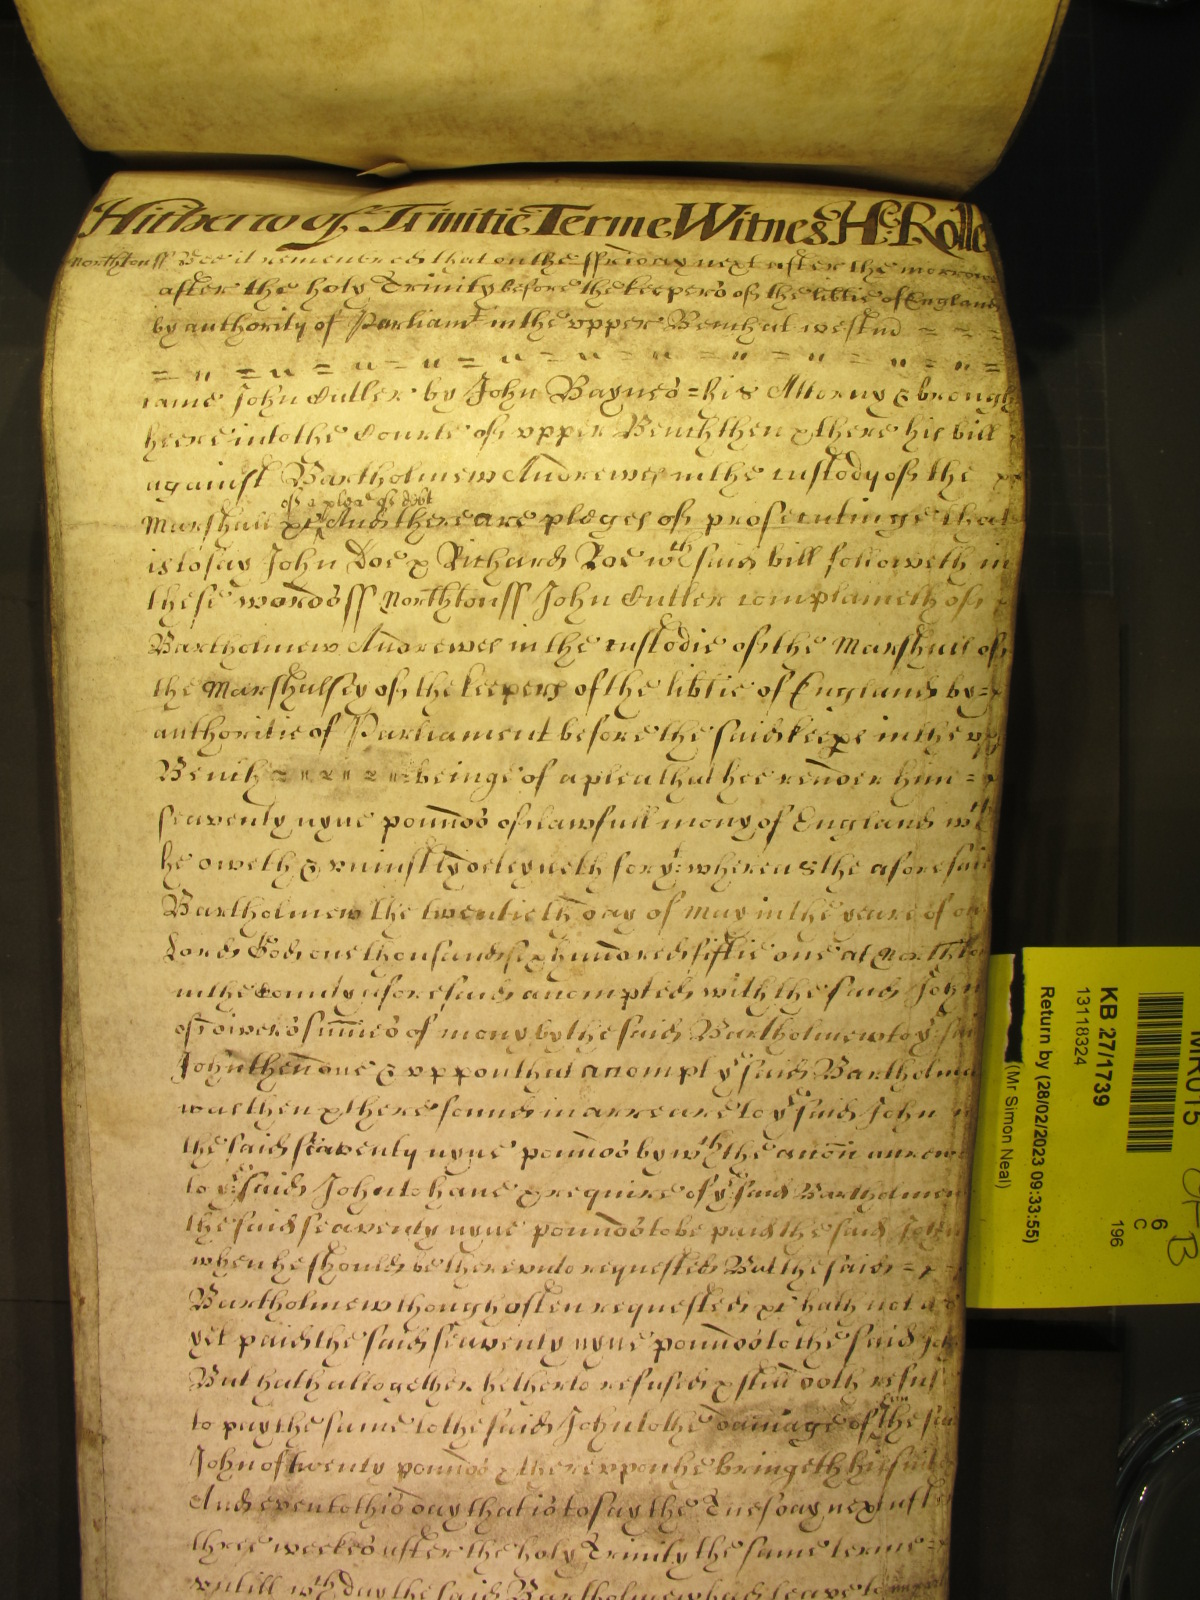 Hitherto of Trinitie Terme Witnes H: Rolle
Northtonss Bee it remembred that on the ffriday next after the morrow
after the holy Trinity before the keepers of the libtie of England
by authority of Parliamt in the vpper Bench at westm
came John Cutler by John Baynes = his Attorny & brought
heere into the Courte of vpper Bench then & there his bill
against Bartholmew Andrewes in the custody of the
of a plea of debt
Marshall &c And there are pledges of prosecutinge that
is to say John Doe & Richard Roe wch said bill followeth in
these words ss Northtonss John Cutler complaineth of
Bartholmew Andrewes in the custodie of the Marshall of
the Marshalsey of the keepers of the libtie of England by =
authoritie of Parliament before the said keeps in the
Bench beinge of a plea that hee render him =
seaventy nyne pounds of lawfull mony of England wch
he oweth & vniustly deteyneth for yt: whereas the aforesaid
Bartholmew the twentieth day of may in the yeare of our
Lord God one thousand six hundred fiftie one at Northton
in the County aforesaid accompted with the said John
of divers summes of mony by the said Bartholmew to ye said
John then one & vppon that accompt ye said Bartholmew
was then & there found in arreare to ye said John
the said seaventy nyne pounds by wch the accon accrewed
to ye said John to have & require of ye said Bartholmew
the said seaventy nyne pounds to be paid the said John
when he should be therevnto requested But the said =
Bartholmew though often requested &c hath not as
yet paid the said seaventy nyne pounds to the said John
But hath altogether hetherto refused & still doth refuse
to pay the same to the said John to the damage of the said
John of twenty pounds & therevppon he bringeth his suite
And even to this day that is to say the Tuesday next after
three weekes after the holy Trinity the same terme =
vntill wch day the said Bartholmew had leave to
MR015
KB 27/1739
13118324
Return by (28/02/2023 09:33:55)
(Mr Simon Neal)
6
C
196